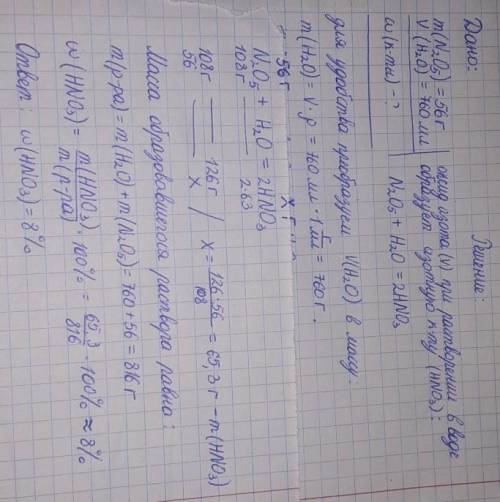 Дано:
m(N₂O₅)=56г
V(H₂O)=760мл
ω(к-ты)-?
Решение:
оксид азота (V) при растворении в воде
образует азотную к-ту (HNO₃):
N₂O₅ + H₂O = 2HNO₃
для удобства преобразуем V(H₂O) в массу.
m(H₂O) = V·ρ = 760 мл · 1 г/мл = 760г.
56г xг
N₂O₅ + H₂O = 2HNO₃
108г 2·63
108г — 126г
56 — x / x = 126·56/108 = 65,3г - m(HNO₃)
Масса образовавшегося раствора равна:
m(р-ра) = m(H₂O)+m(N₂O₅) = 760+56 = 816г
ω(HNO₃) = m(HNO₃)/m(р-ра) · 100% = 65,3/816 · 100% ≈ 8%
Ответ: ω(HNO₃) = 8%